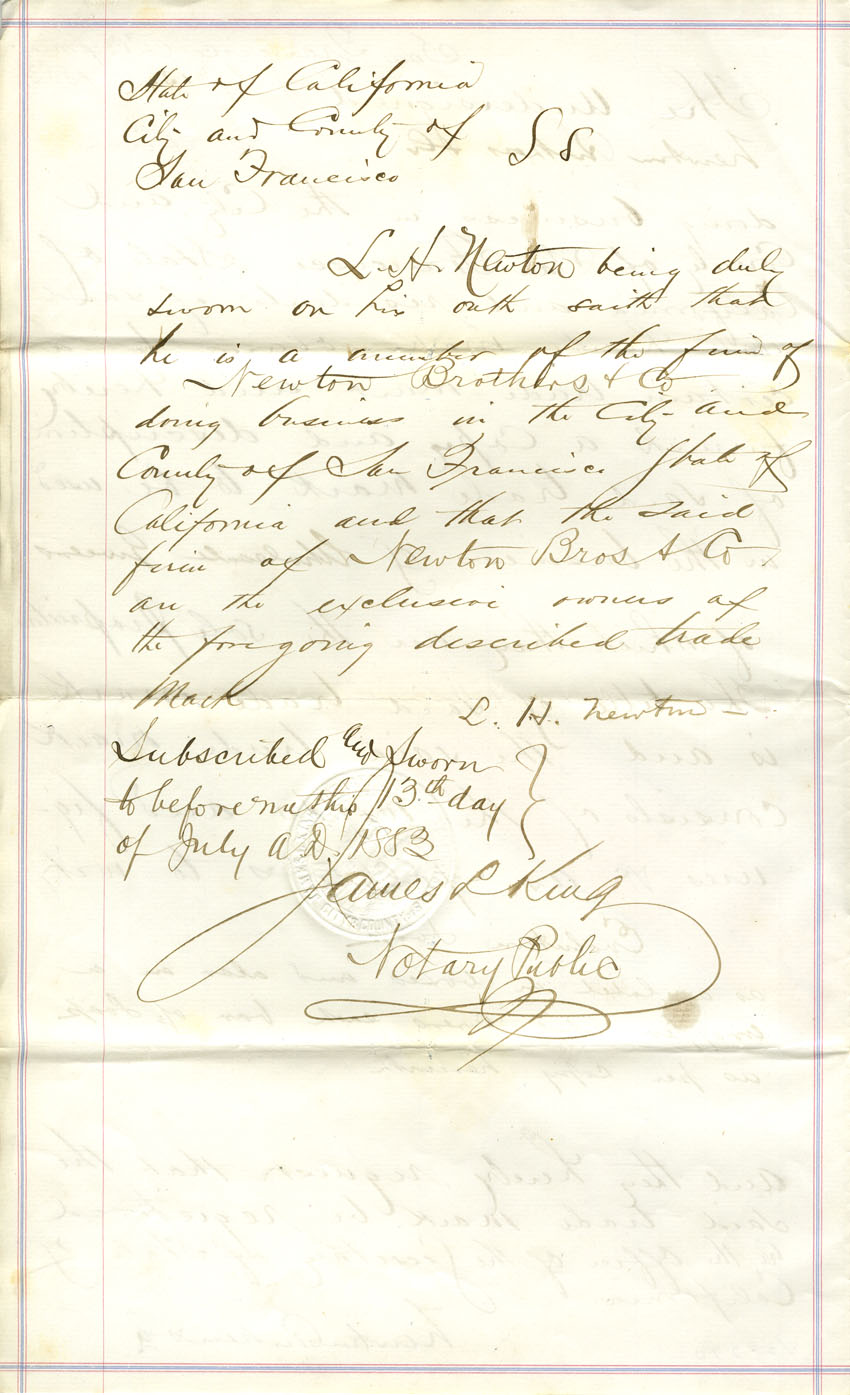 State of California
City and County of SS
San Francisco
L. H. Newton being duly
sworn on his oath saith that
he is a member of the firm of
Newton Brothers & Co
doing business in the City and
County of San Francisco State of
California and that the said
firm of Newton Bros & Co
are the exclusive owners of
the foregoing described trade
Mark
L. H. Newton
Subscribed and Sworn
to before me this 13th day
of July A.D. 1883
James L King
Notary Public